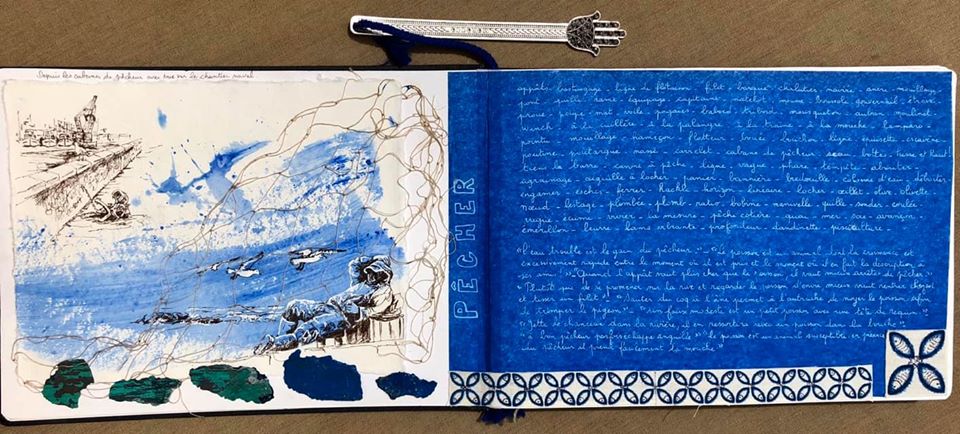 Depuis les cabanes de pêcheur avec vue sur le chantier naval
PÊCHER
appâts - bastingage - ligne de flottaison - filet - barque - chalutier - navire - ancre - mouillage
pont - poulie - rame - équipage - capitaine - matelot - mousse - boussole gouvernail - étrave
proue - poupe - mat - voile - pagaies babord - tribord - mousqueton - autour moulinet
à la cuillère - à la palangre - à la traîne - à la mouche - lamparo -
pointu - mouillage - hameçon - flotteur - bouée - bouchon - ligne - épuisette - crevette
poutine - poutargue - masse - carrelet - cabane de pêcheur seau - boîtes -
tiens la barre - canne à pêche - digue - vague - phare - tempête -
égrainage - aiguille à locher - panier - bannière - bredouille - colonne d'eau -
engamer - escher - ferrer - horizon - locher - œillet - olive - olivette
Nœud - lestage - plombée - plomb - ratio - bobine - manivelle - quille - sonder - coulée
écume - vivier - la mesure - pêche côtière - quai - mer - sac -
émerillon - leurre - banc - profondeur - dandinette - pisciculture -
"L'eau trouble est le gain du pêcheur" - "Le poisson est un animal dont la croissance est
excessivement rapide entre le moment où il est pris et le moment où on en fait la description à
ses amis" - "Quand l'appât vaut plus cher que le poisson, il vaut mieux arrêter de pêcher"
"Plutôt que de se promener sur la rive et regarder le poisson d'envie mieux vaut rentrer chez soi
et tisser un filet" - "Sauter du coq à l'âne permet à l'autruche de noyer le poisson afin
de tromper le pigeon" - "Un faux modeste est un petit poisson avec une tête de requin"
"Jette le chanceux dans la rivière, il en ressortira avec un poisson dans la bouche"
"à bon pêcheur parfois échappe anguille" - "Le poisson est un animal susceptible, en présence
du pêcheur il prend facilement la mouche"